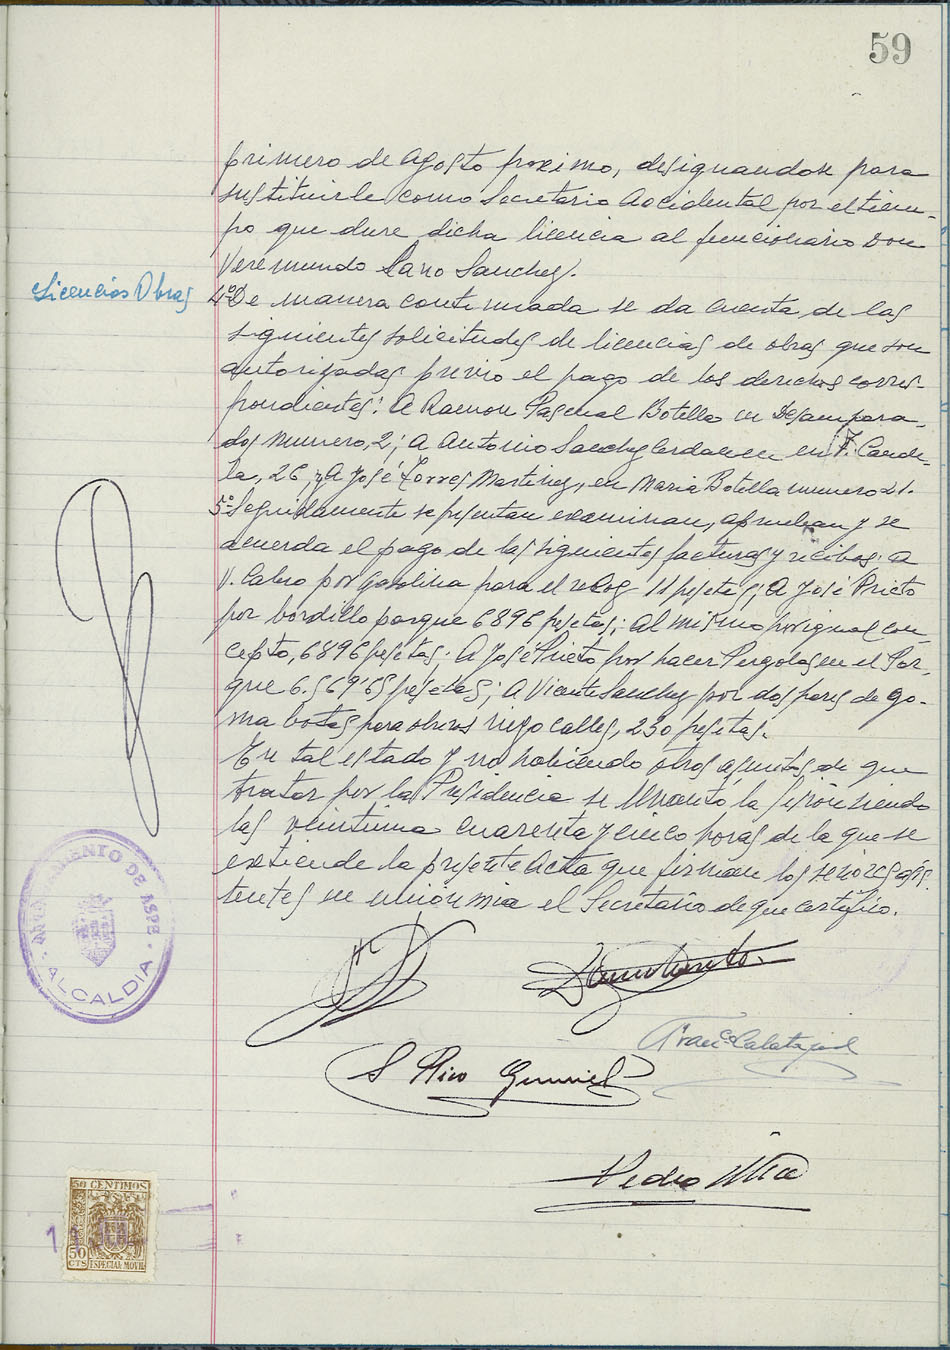 59
primero de Agosto proximo, designandose para
sustituirle como Secretario Accidental por el tiem-
po que dure dicha licencia al funcionario Don
Veremundo Sano Sanchez.
Licencias Obras
4º De manera continuada se da cuenta de las
siguientes solicitudes de licencias de obras que son
autorizadas previo el pago de los derechos corres-
pondientes: A Ramon Pascual Botella en Desampara-
dos numero, 2; a Antonio Sanchez en en F. Cande-
la, 26, y A José Torres Martinez, en Maria Botella numero 21.
5º Seguidamente se presentan examinan, aprueban y se
acuerda el pago de las siguientes facturas y recibos: a
V. Calero por Gasolina para el reloz 11 pesetas; A José Prieto
por bordillo parque 6896 pesetas; Al mismo por igual con-
cepto, 6896 pesetas; A José Prieto por hacer Pergolas en el Par-
que 6.569'65 pesetas; a Vicente Sanchez por dos pares de go-
ma botas para obreros riego calles, 230 pesetas.
En tal estado y no habiendo otros asuntos de que
tratar por la Presidencia se levantó la sesión siendo
las veintiuna cuarenta y cinco horas de la que se
extiende la presente Acta que firman los señores asis-
tentes en unión mia el Secretario de que certifico.
AYUNTAMIENTO DE ASPE
ALCALDIA
Franco Calatayud
S Rico
Pedro Mira
50 CENTIMOS
50
CTS
ESPECIAL MOVIL